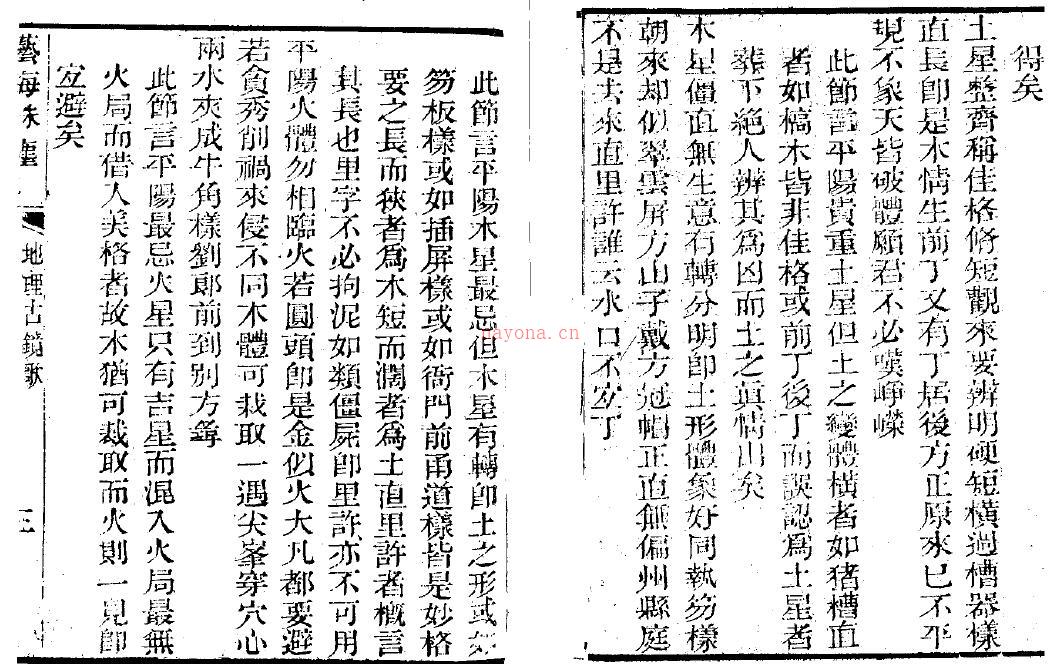 得矣
土星整齊稱佳格脩短觀來要辨明硬短橫過槽器樣
直長卽是木情生前丁又有丁居後方正原來已不平
現不象天皆破體願君不必嘆崢嶸
此節言平陽貴重土星但土之變體橫者如猪槽直
者如槁木皆非佳格或前丁後丁而誤認爲土星者
葬下絕人辨其爲凶而土之眞情出矣
木星僵直無生意有轉分明卽土形體象好同執笏樣
朝來却似翠雲屏方山子戴方冠帽正直無偏州縣庭
不是去來直里許誰云水口不宜丁
此節言平陽木星最忌但木星有轉卽土之形或如
笏板樣或如插屏樣或如衙門前甬道樣皆是妙格
要之長而狹者爲木短而濶者爲土直里許者槪言
其長也里字不必拘泥如類僵屍卽里許亦不可用
平陽火體勿相臨火若圓頭卽是金似火大凡都要避
若貪秀削禍來侵不同木體可裁取一遇尖峯穿穴心
兩水夾成牛角樣劉郞前到別方尋
此節言平陽最忌火星只有吉星而混入火局最無
火局而借入美格者故木猶可裁取而火則一見卽
宜避矣
藝海珠塵
地理古鏡歌
三
nayona.cn